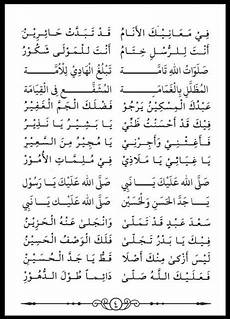 فِيْ مَعَانِيْكَ الأَنَامُ قَدْ تَبَدَّتْ حَائِرِيْنَ
أَنْتَ لِلرُّسْلِ خِتَامٌ أَنْتَ لِلْمَوْلَى شَكُوْرُ
صَلَوَاتُ اللهِ تَامَّة تَبْلُغُ الْهَادِيْ لِلأُمَّة
الْمُظَلَّلِ بِالْغَمَامَة الْمُشَفَّعِ فِى الْقِيَامَة
عَبْدُكَ الْمِسْكِيْنُ يَرْجُوْ فَضْلَكَ الْجَمَّ الْغَفِيْرَ
فِيْكَ قَدْ أَحْسَنْتُ ظَنِّيْ يَا بَشِيْرُ يَا نَذِيْرُ
فَأَغِثْنِيْ وَأَجِرْنِيْ يَا مُجِيْرُ مِنَ السَّعِيْرِ
يَا غِيَاثِيْ يَا مَلاَذِيْ فِيْ مُلِمَّاتِ الأُمُوْرِ
صَلَّ الله عَلَيْكَ يَا نَبِي صَلَّ الله عَلَيْكَ يَا رَسُوْل
جَدَّ الْحَسَنِ وَلْحُسَيْن صَلَّ الله عَلَيْكَ يَا نَبِي
سَعْدَ عَبْدٌ قَدْ تَمَلَّى وَانْجَلَى عَنْهُ الْحَزِيْنُ
فِيْكَ يَا بَدْرُ تَجَلَّى فَلَكَ الْوَصْفُ الْحَسِيْنُ
لَيْسَ أَزْكَى مِنْكَ أَصْلاً قَطُّ يَا جَدَّ الْحُسَيْنِ
فَعَلَيْكَ اللهُ صَلَّى دَائِماً طُوْلَ الدُّهُوْرِ
٤